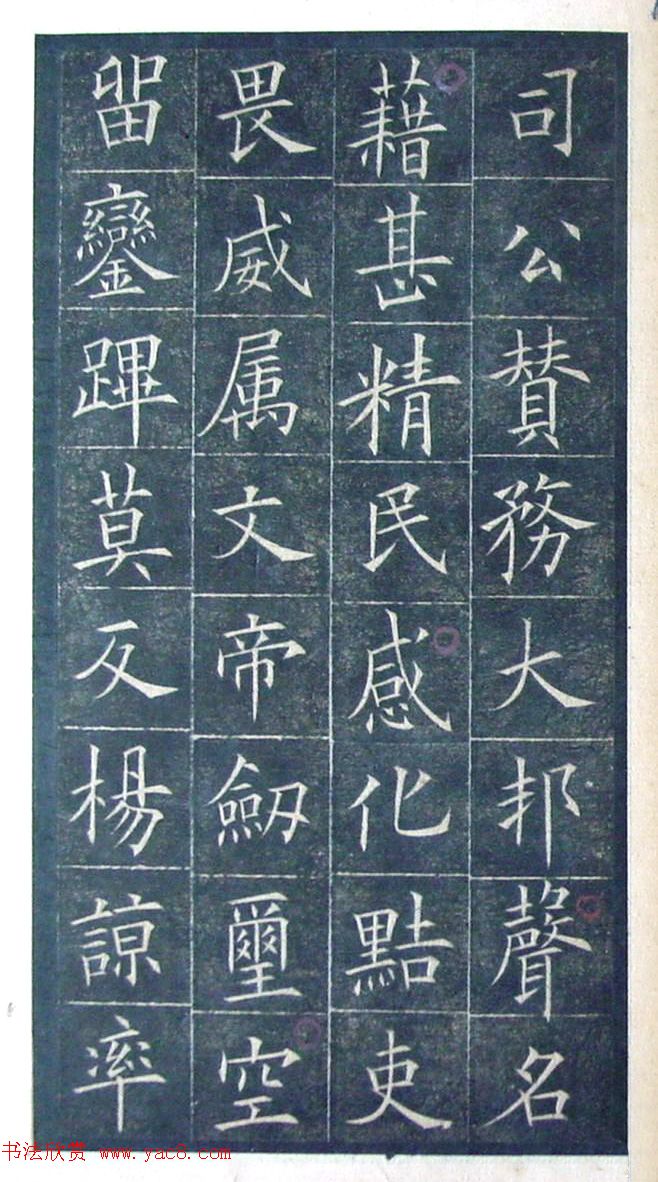 司公賛務大邦聲名
藉甚精民感化黠吏
畏威属文帝劔璽空
留鑾蹕莫反楊諒率
书法欣赏 www.yac8.com